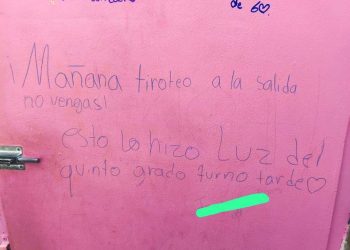 de 6♡.
¡Mañana tiroteo a la salida
no vengas!
esto lo hizo Luz del
quinto grado turno tarde♡